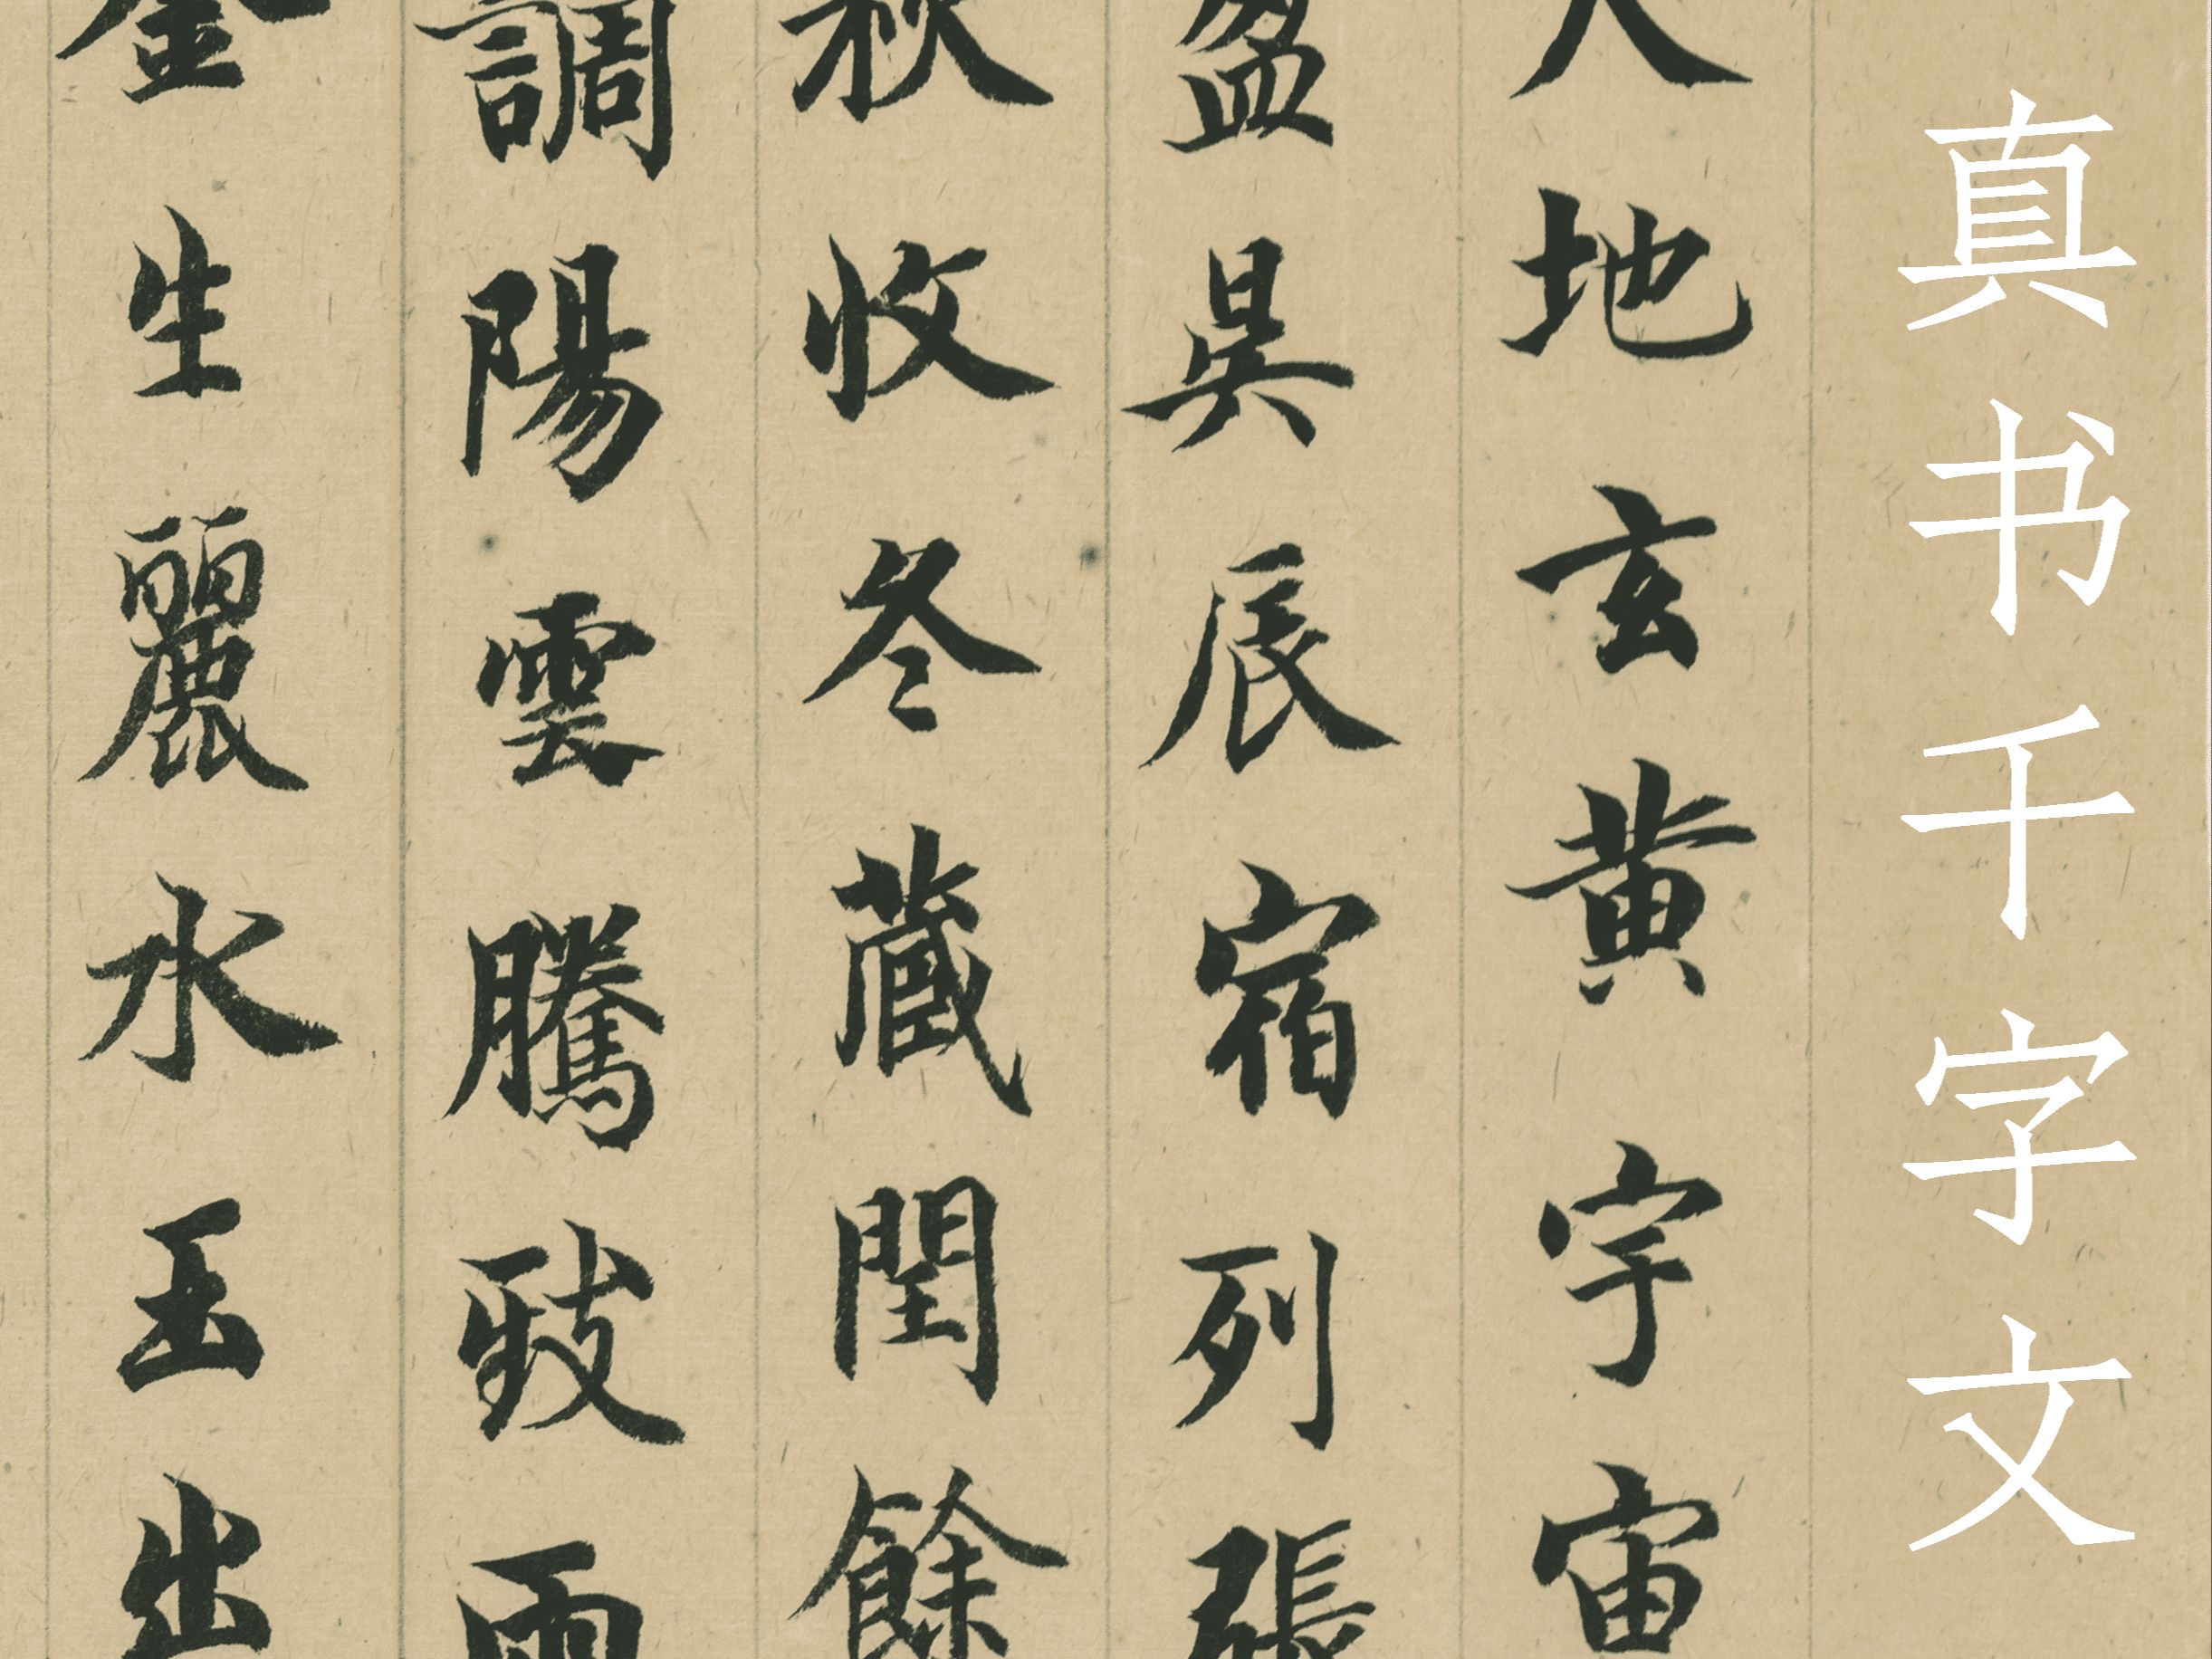 真书千字文
天地玄黄宇宙
盈昃辰宿列張
秋收冬藏閏餘
調陽雲騰致雨
金生麗水玉出